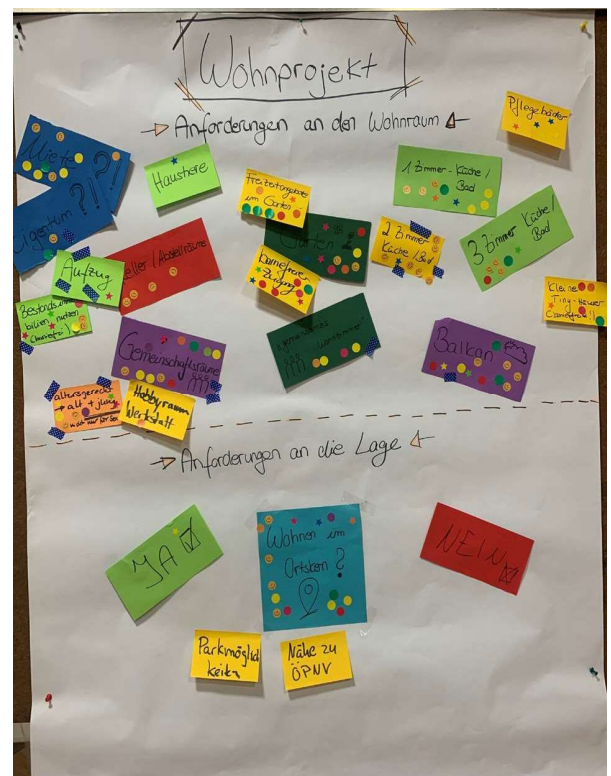 Wohnprojekt
Anforderungen an den Wohnraum
Pflegebäder
Miete ?!
Eigentum ?!
Haustiere
Freizeitangebote
im Garten
1 Zimmer - Küche /
Bad
Garten
2 Zimmer
Küche / Bad
3 Zimmer Küche /
Bad
Aufzug
Keller / Abstellräume
barrierefreier
Zugang
Kleine
Tiny-Häuser
(barrierefrei!)
Bestandsimmo-
bilien nutzen
(barrierefrei)
Gemeinschaftsräume
gemeinsames
Wohnzimmer
Balkon
altersgerecht
→ alt + jung
nicht nur für Sen
Hobbyraum
Werkstatt
Anforderungen an die Lage
JA
Wohnen im
Ortskern ?
NEIN
Parkmöglich
keiten
Nähe zu
ÖPNV